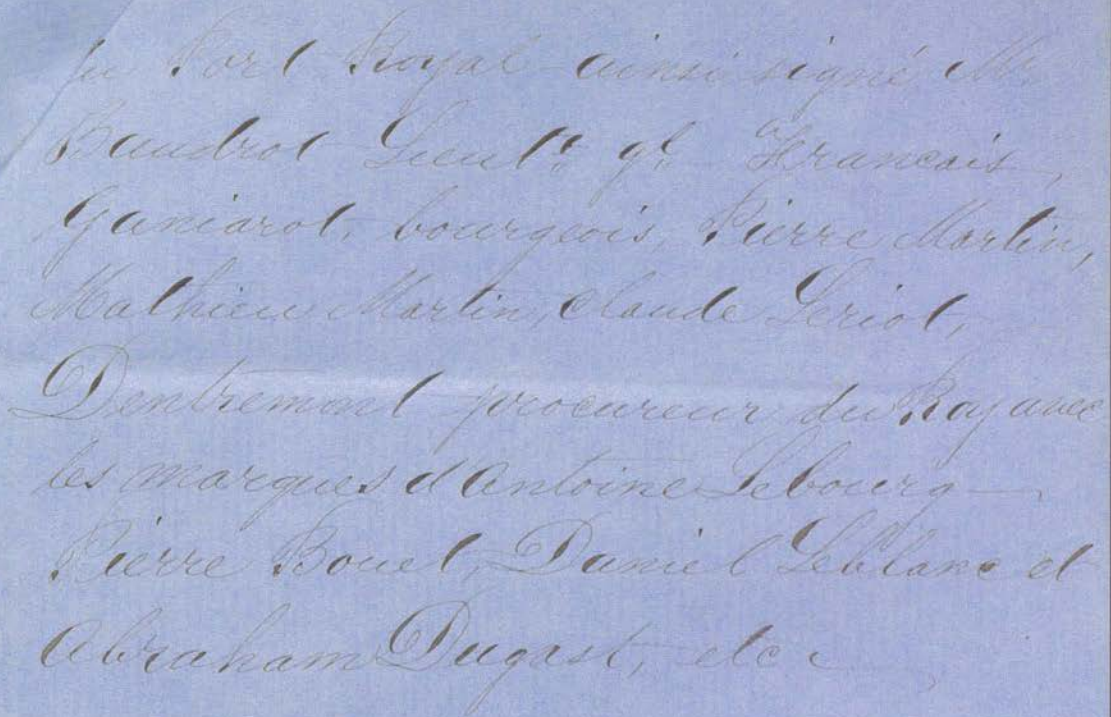 du Port Royal ainsi signé Mr
Baudrot Lieut. gl. Francois,
Ganiarot, bourgeois, Pierre Martin,
Mathieu Martin, Claude Teriot,
Dentremont procureur du Roy avec
les marques d'Antoine Lebourg
Pierre Bouet, Daniel Leblanc et
Abraham Dugast, etc